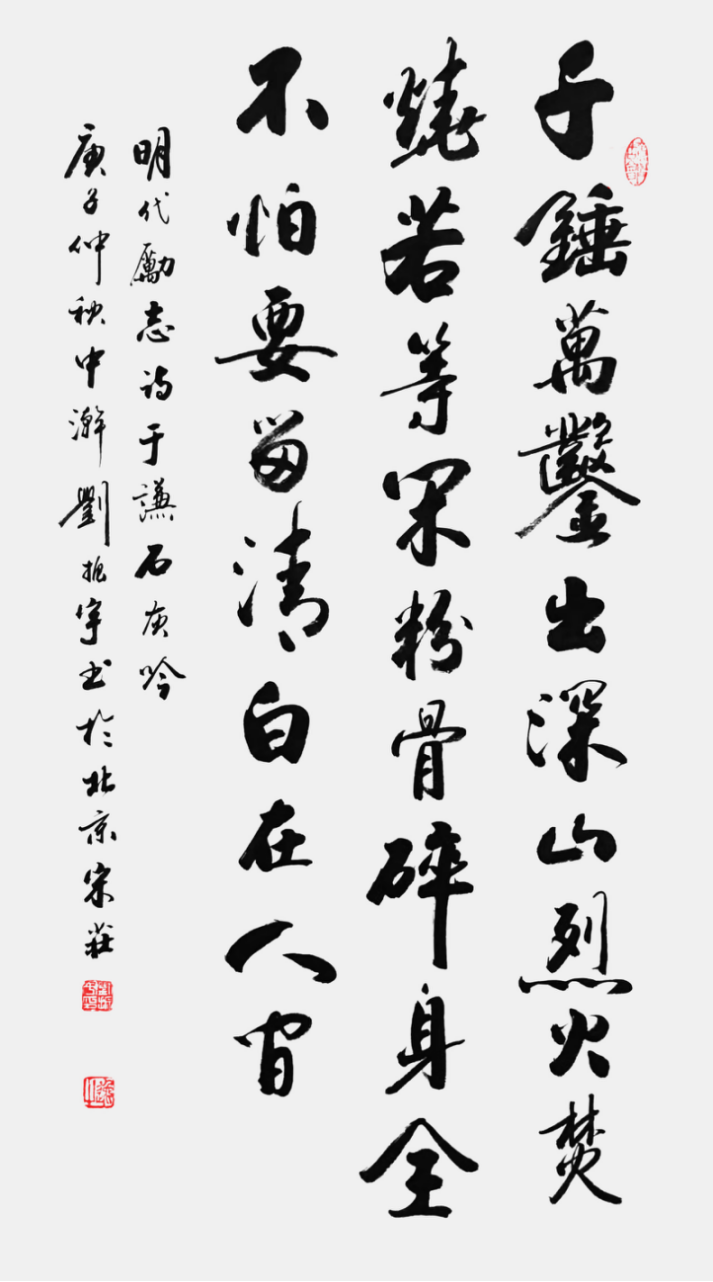 千錘萬鑿出深山烈火焚
燒若等閑粉骨碎身全
不怕要留清白在人間
明代勵志诗于謙石灰吟
庚子仲秋中澣劉振宇书於北京宋莊